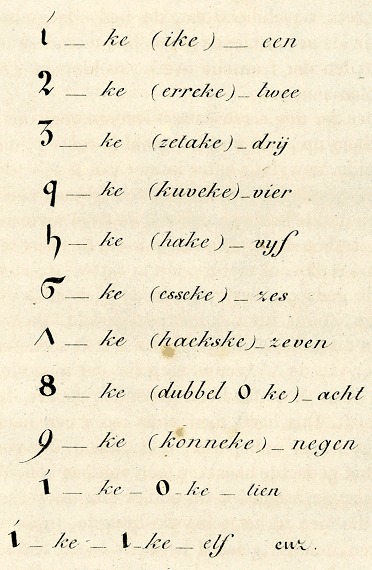 í — ke (ike) — een
2 — ke (erreke) — twee
3 — ke (zetake) — drij
q — ke (kuveke) — vier
h — ke (hake) — vyf
6 — ke (esseke) — zes
ʌ — ke (haekske) — zeven
8 — ke (dubbel 0 ke) — acht
9 — ke (konneke) — negen
í — ke — 0 — ke — tien
í — ke — 1 — ke — elf enz.